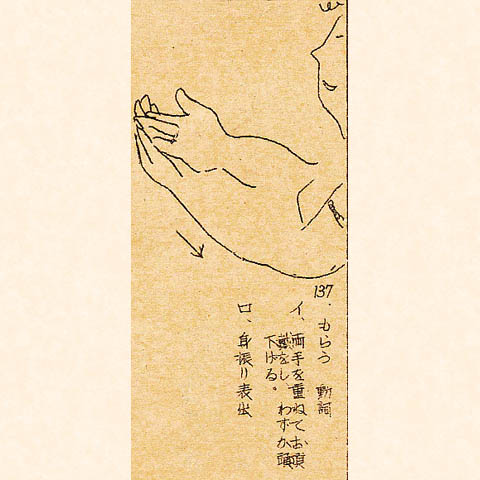 137. もらう 動詞
イ、両手を重ねてお頂
戴をし、わずか頭
下げる。
ロ、身振り表出